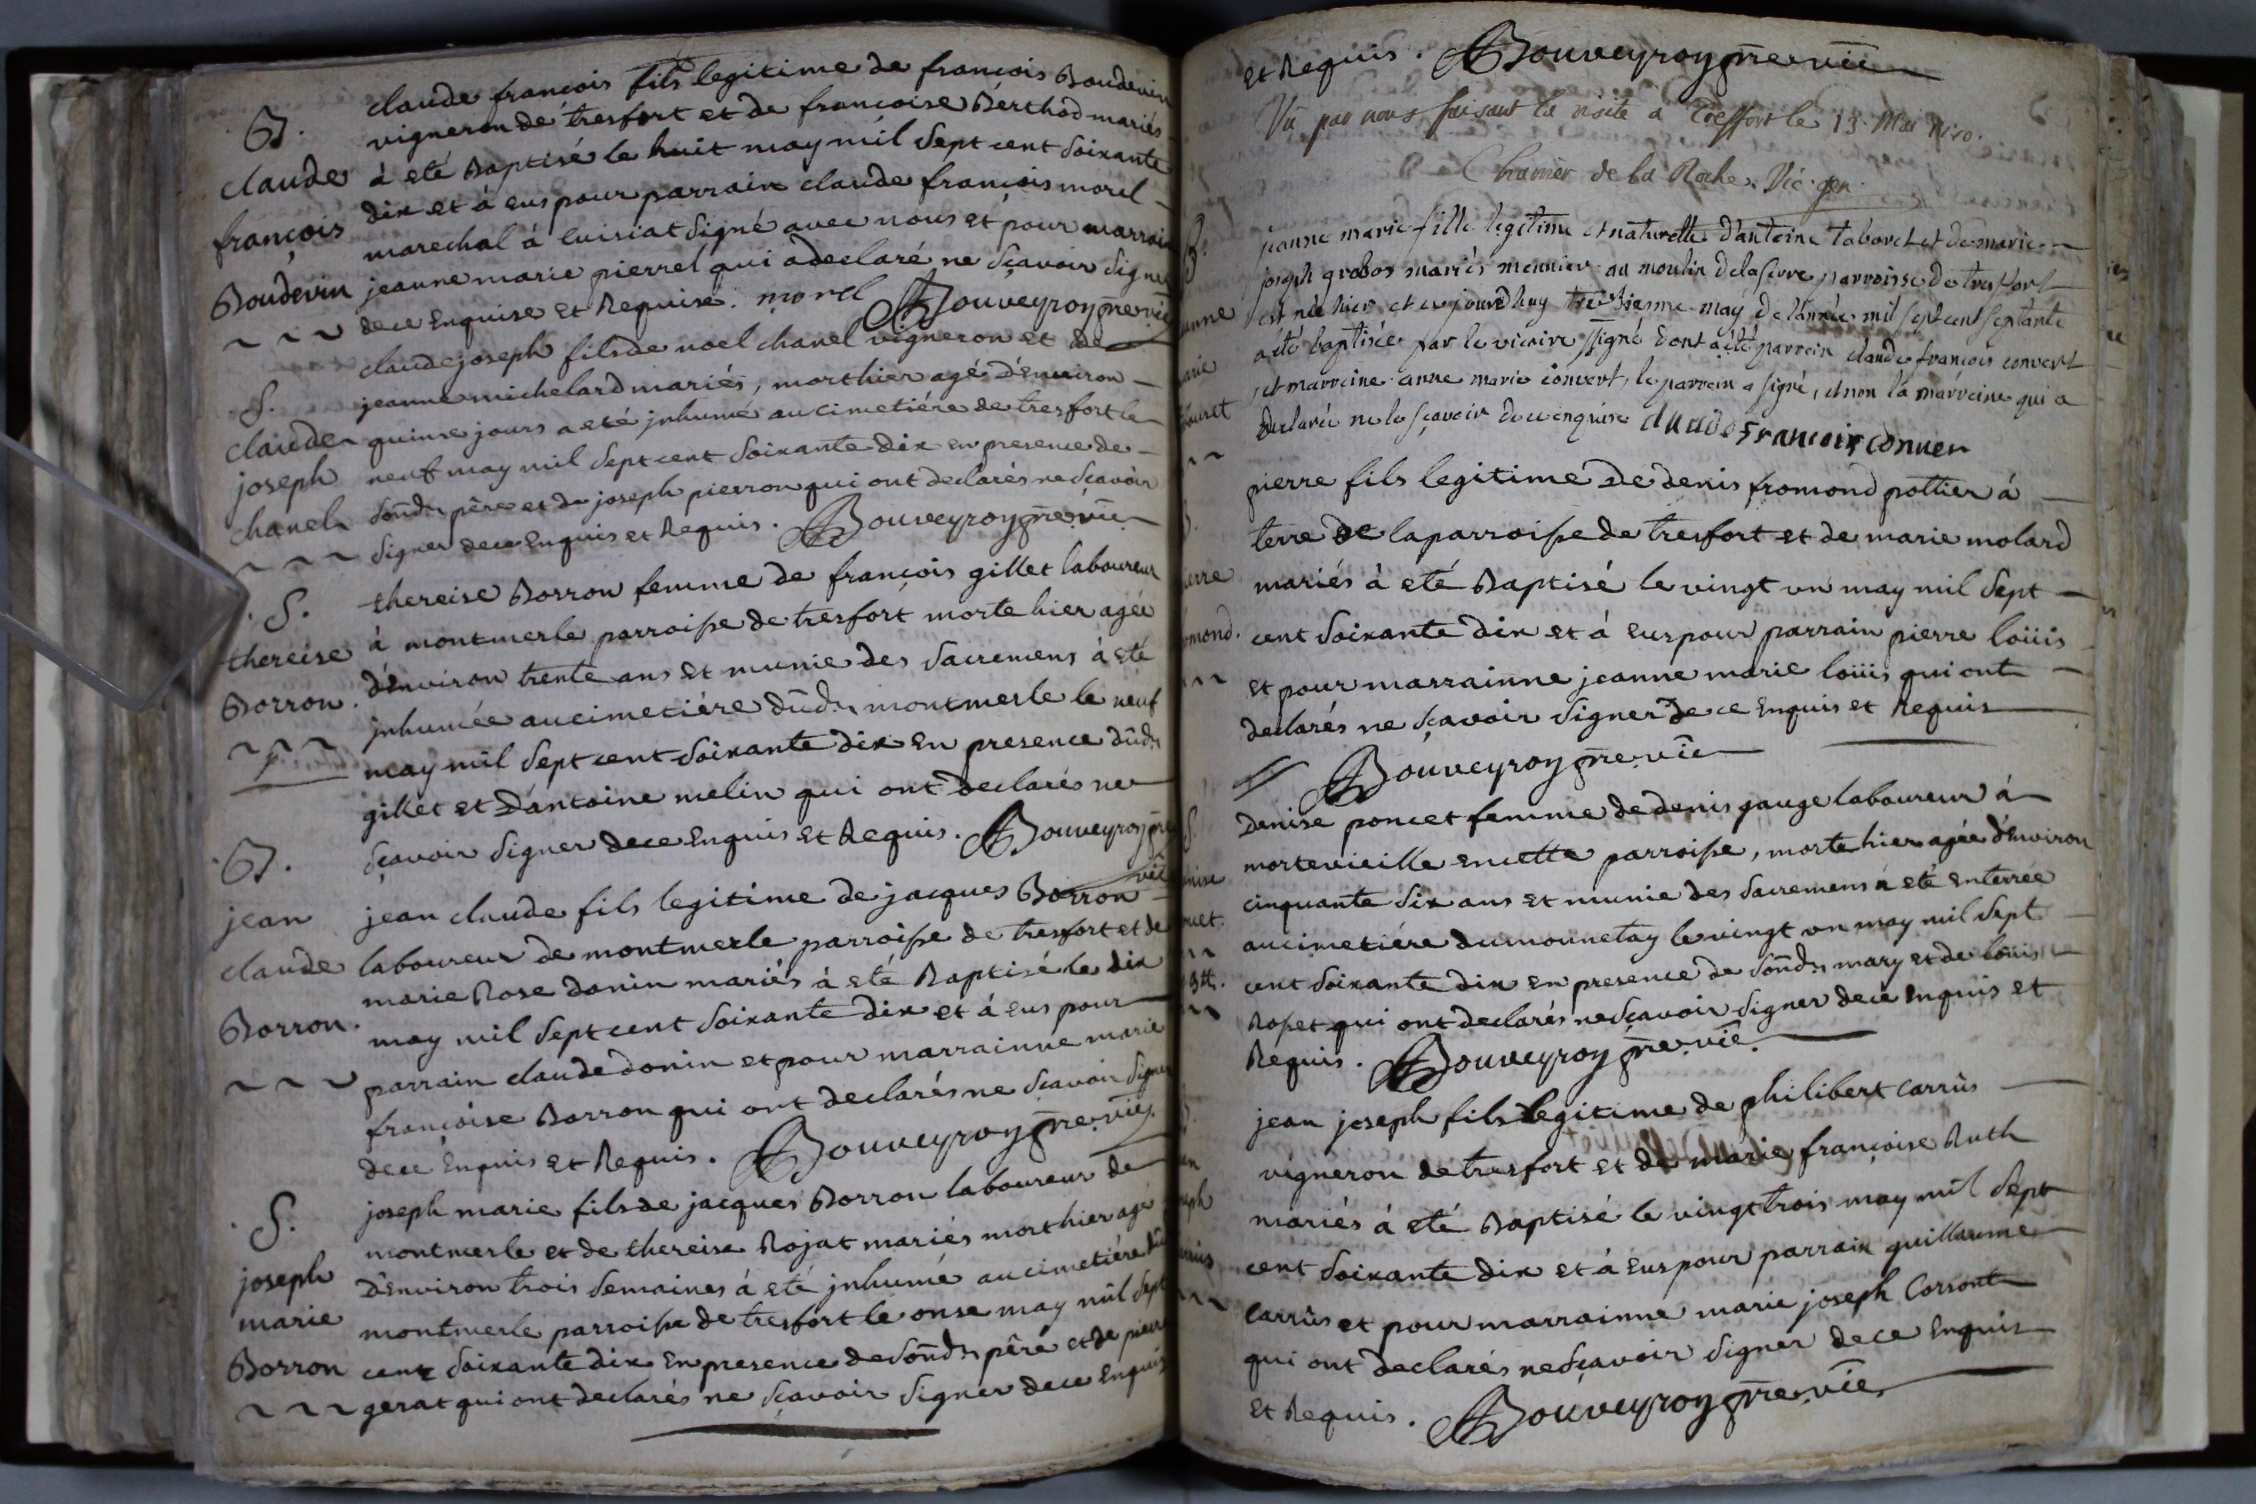 B.
claude
françois
Boudevin
claude françois fils legitime de françois Boudevin
vigneron de tresfort et de françoise Berthod mariés
à eté Baptisé le huit may mil sept cent soixante
dix et à eus pour parrain claude françois morel
marechal à cuisiat signé avec nous et pour marrain
jeanne marie pierrel qui a declaré ne sçavoir signer
dece Enquise et Requise. morel Bouveyroy pre vic
S.
claude
joseph
chanel
claude joseph fils de noel chanel vigneron et de
jeanne michelard mariés, mort hier agé d'Environ
quinse jours a eté jnhumé au cimetiére de tresfort le
neuf may mil sept cent soixante dix en presence de
sondt pêre et de joseph pierron qui ont declarés ne sçavoir
signer dece Enquis et Requis. Bouveyroy pre vic
S.
thereise
Borron.
thereise Borron femme de françois gillet laboureur
à montmerle parroisse de tresfort morte hier agée
d'Environ trente ans et munie des sacremens à eté
jnhumée au cimetiére dûdt montmerle le neuf
may mil sept cent soixante dix En presence dûdt
gillet et D'antoine melin qui ont declarés ne
sçavoir signer dece Enquis et Requis. Bouveyroy pre
vic
B.
jean
claude
Borron.
jean claude fils legitime de jacques Borron
laboureur de montmerle parroisse de tresfort et de
marie Rose donin mariés à eté Baptisé le dix
may mil sept cent soixante dix et à eus pour
parrain claude donin et pour marrainne marie
françoise Borron qui ont declarés ne sçavoir signer
dece Enquis et Requis. Bouveyroy pre vic
S.
joseph
marie
Borron
joseph marie fils de jacques Borron laboureur de
montmerle et de thereise Rojat mariés mort hier agé
D'Environ trois semaines à eté jnhumé au cimetiére dû
montmerle parroisse de tresfort le onse may mil sept
cent soixante dix En presence de sondt pêre et de pierre
gerat qui ont declarés ne sçavoir signer dece Enquis
et Requis. Bouveyroy pre vic
Vû par nous faisant la visite à Treffort le 13. Mai 1770.
Charrier de la Roche. Vic. gen.
jeanne marie fille legitime et naturelle d'antoine taboret et de marie
joseph grobos mariés meunier au moulin de la serve parroisse de tresfort
est née hier et cejourdhuy treisieme may de l'année mil sept cent septante
a été baptisée par le vicaire ssigné dont a été parrein claude francois convert
et marreine anne marie convert, le parrein a signé, et non la marreine qui a
declarée ne le sçavoir de ce enquise claude francois conver
pierre fils legitime De denis fromond pottier à
terre de la parroisse de tresfort et de marie molard
mariés à eté Baptisé le vingt un may mil sept
cent soixante dix et à eus pour parrain pierre loüis
et pour marrainne jeanne marie loüis qui ont
declarés ne sçavoir signer De ce Enquis et Requis
Bouveyroy pre vic
Denise poncet femme de denis gauge laboureur à
mortevieille en cette parroisse, morte hier agée d'Environ
cinquante six ans et munie des sacremens à eté enterrée
au cimetiére du monnetay le vingt un may mil sept
cent soixante dix en presence de sondt mary et de loüis
Rosset qui ont declarés ne sçavoir signer dece Enquis et
Requis. Bouveyroy pre vic
jean joseph fils legitime de philibert carrûs
vigneron de tresfort et de marie françoise Ruth
mariés à eté Baptisé le vingt trois may mil sept
cent soixante dix et à eus pour parrain guillaume
carrûs et pour marrainne marie joseph Corront
qui ont declarés ne sçavoir signer dece Enquis
et Requis. Bouveyroy pre vic